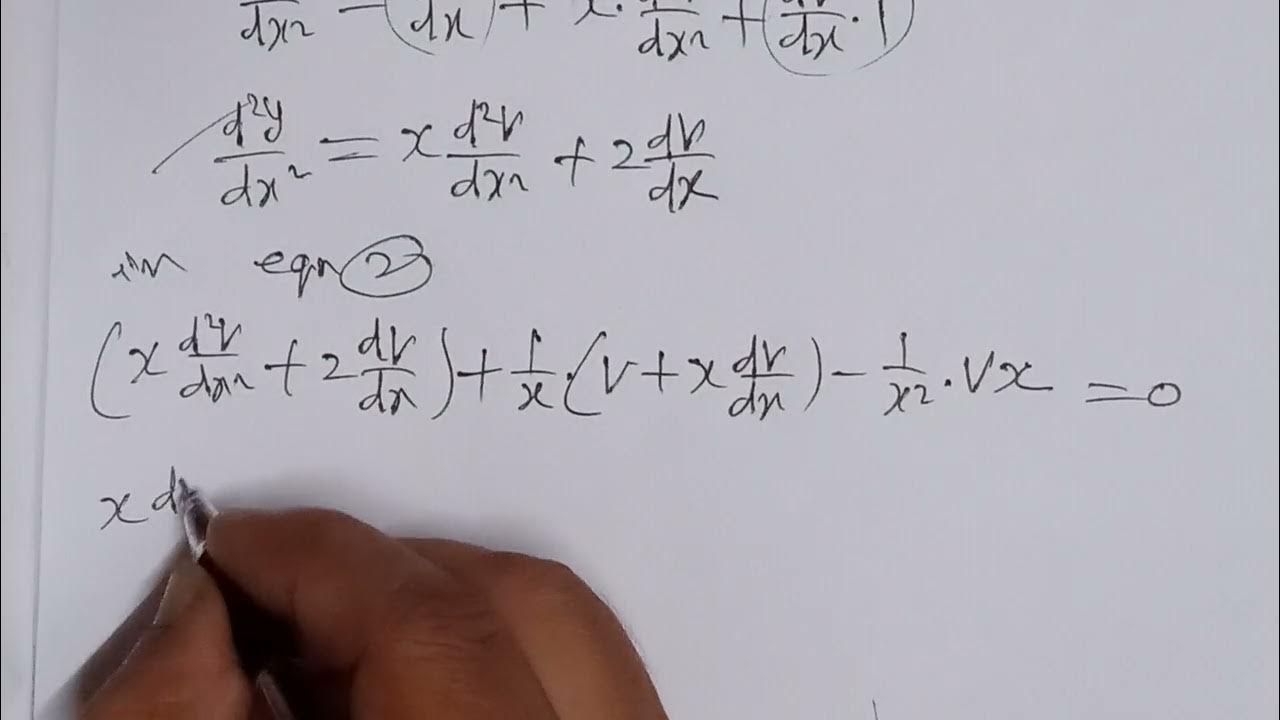 dx² = dx + x. dx² + dx . 1
d²y/dx² = x d²v/dx² + 2 dv/dx
in eqn 2
(x d²v/dx² + 2 dv/dx) + 1/x . (v + x dv/dx) - 1/x² . vx = 0
x d